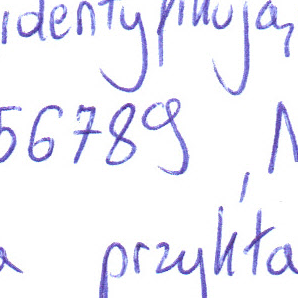 identyfikują
56789 N
a przykła